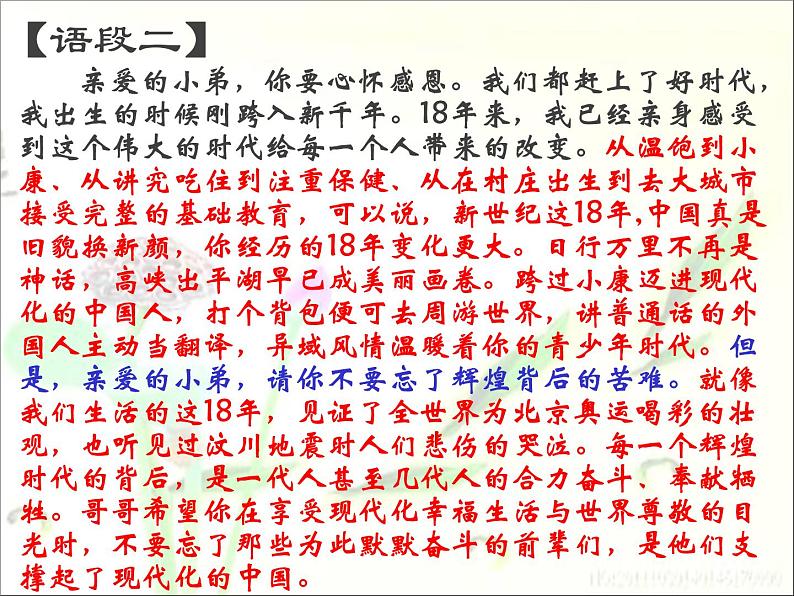 【语段二】
亲爱的小弟，你要心怀感恩。我们都赶上了好时代，
我出生的时候刚跨入新千年。18年来，我已经亲身感受
到这个伟大的时代给每一个人带来的改变。从温饱到小
康、从讲究吃住到注重保健、从在村庄出生到去大城市
接受完整的基础教育，可以说，新世纪这18年,中国真是
旧貌换新颜，你经历的18年变化更大。日行万里不再是
神话，高峡出平湖早已成美丽画卷。跨过小康迈进现代
化的中国人，打个背包便可去周游世界，讲普通话的外
国人主动当翻译，异域风情温暖着你的青少年时代。但
是，亲爱的小弟，请你不要忘了辉煌背后的苦难。就像
我们生活的这18年，见证了全世界为北京奥运喝彩的壮
观，也听见过汶川地震时人们悲伤的哭泣。每一个辉煌
时代的背后，是一代人甚至几代人的合力奋斗、奉献牺
牲。哥哥希望你在享受现代化幸福生活与世界尊敬的目
光时，不要忘了那些为此默默奋斗的前辈们，是他们支
撑起了现代化的中国。